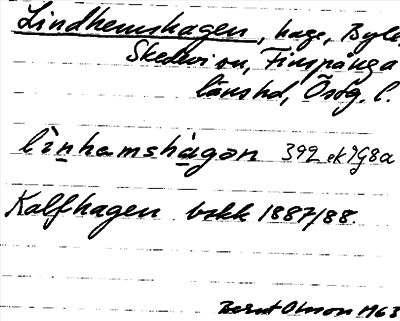 Lindhemshagen, hage, Byle,
Skedevi sn, Finspånga
länshd, Östg. l.
lìnhamshàgən 392 ek7G8a
Kalfhagen bskk 1887/88.
Bernt Olsson 1963